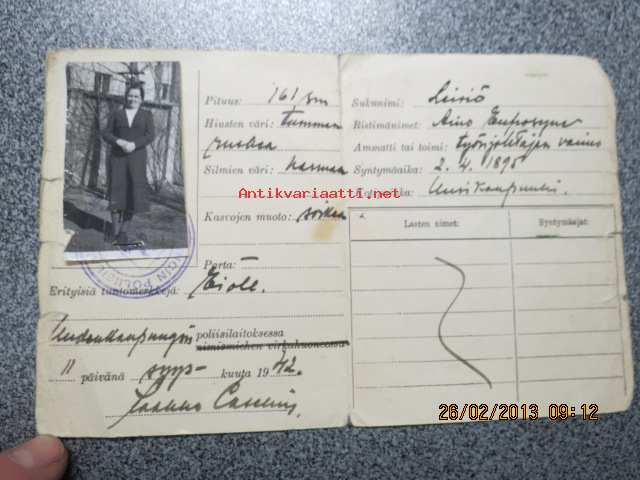 Pituus: 161 sm
Hiusten väri: tumman
ruskea
Silmien väri: harmaa
Kasvojen muoto: soikea
Parta:
Erityisiä tuntomerkkejä: Ei ole.
Uudenkaupungin poliisilaitoksessa
nimismiehen virkahuoneessa
11 päivänä syys- kuuta 1942.
Jaakko
Sukunimi: Leisiö
Ristimänimet: Aino Eufrosyne
Ammatti tai toimi: työnjohtajan vaimo
Syntymäaika: 2.4.1895
Uusikaupunki.
Lasten nimet:
Syntymäajat:
Antikvariaatti.net
26/02/2013 09:12